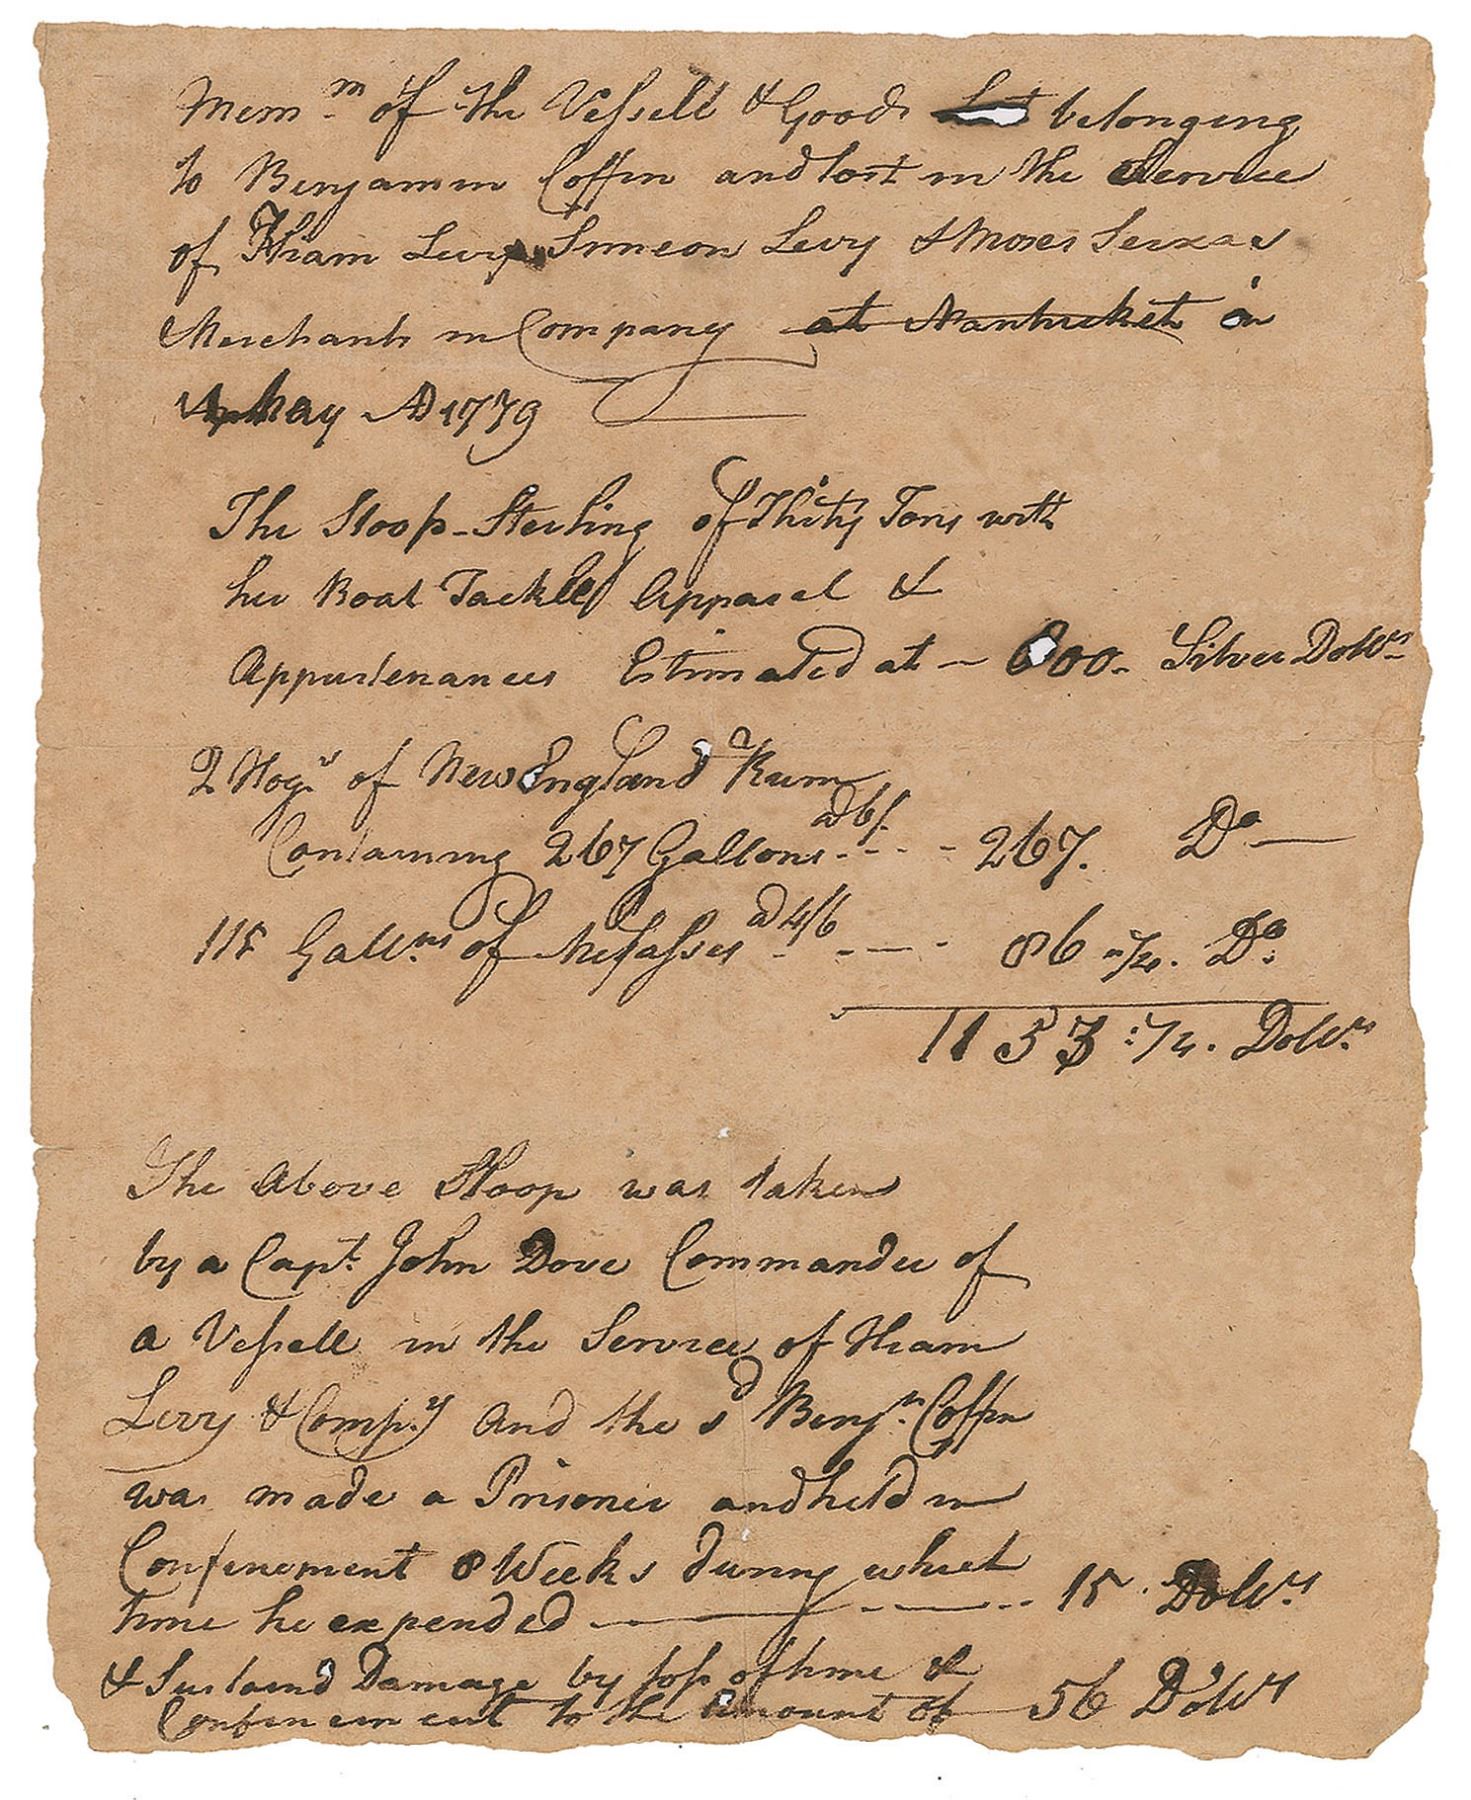 Mem.m of the Vessell & Goods belonging
to Benjamin Coffin and lost in the Service
of Hiam Levy Simeon Levy & Moses Seixas
Merchants in Company at Nantucket in
May AD 1779
The Sloop-Sterling of Thirty Tons with
her Boat Tackle Apparel &
Appurtenances Estimated at - 800- Silver Dollrs
2 Hogs of New England Rum
Containing 267 Gallons a 6/ - - - - 267. Do
115 Gallns of Melasses a 4/6 - - - - 86 " /4. Do
1153 : /4. Dollrs
The Above Sloop was taken
by a Capt. John Dove Commander of
a Vessell in the Service of Hiam
Levy & Compy and the sd Benjn Coffin
was made a Prisoner and held in
Confinement 8 Weeks during which
time he expended - - - - 15. Dollrs
& Sustaind Damage by loss of time &
Confinement to the Amount of 56 Dollrs